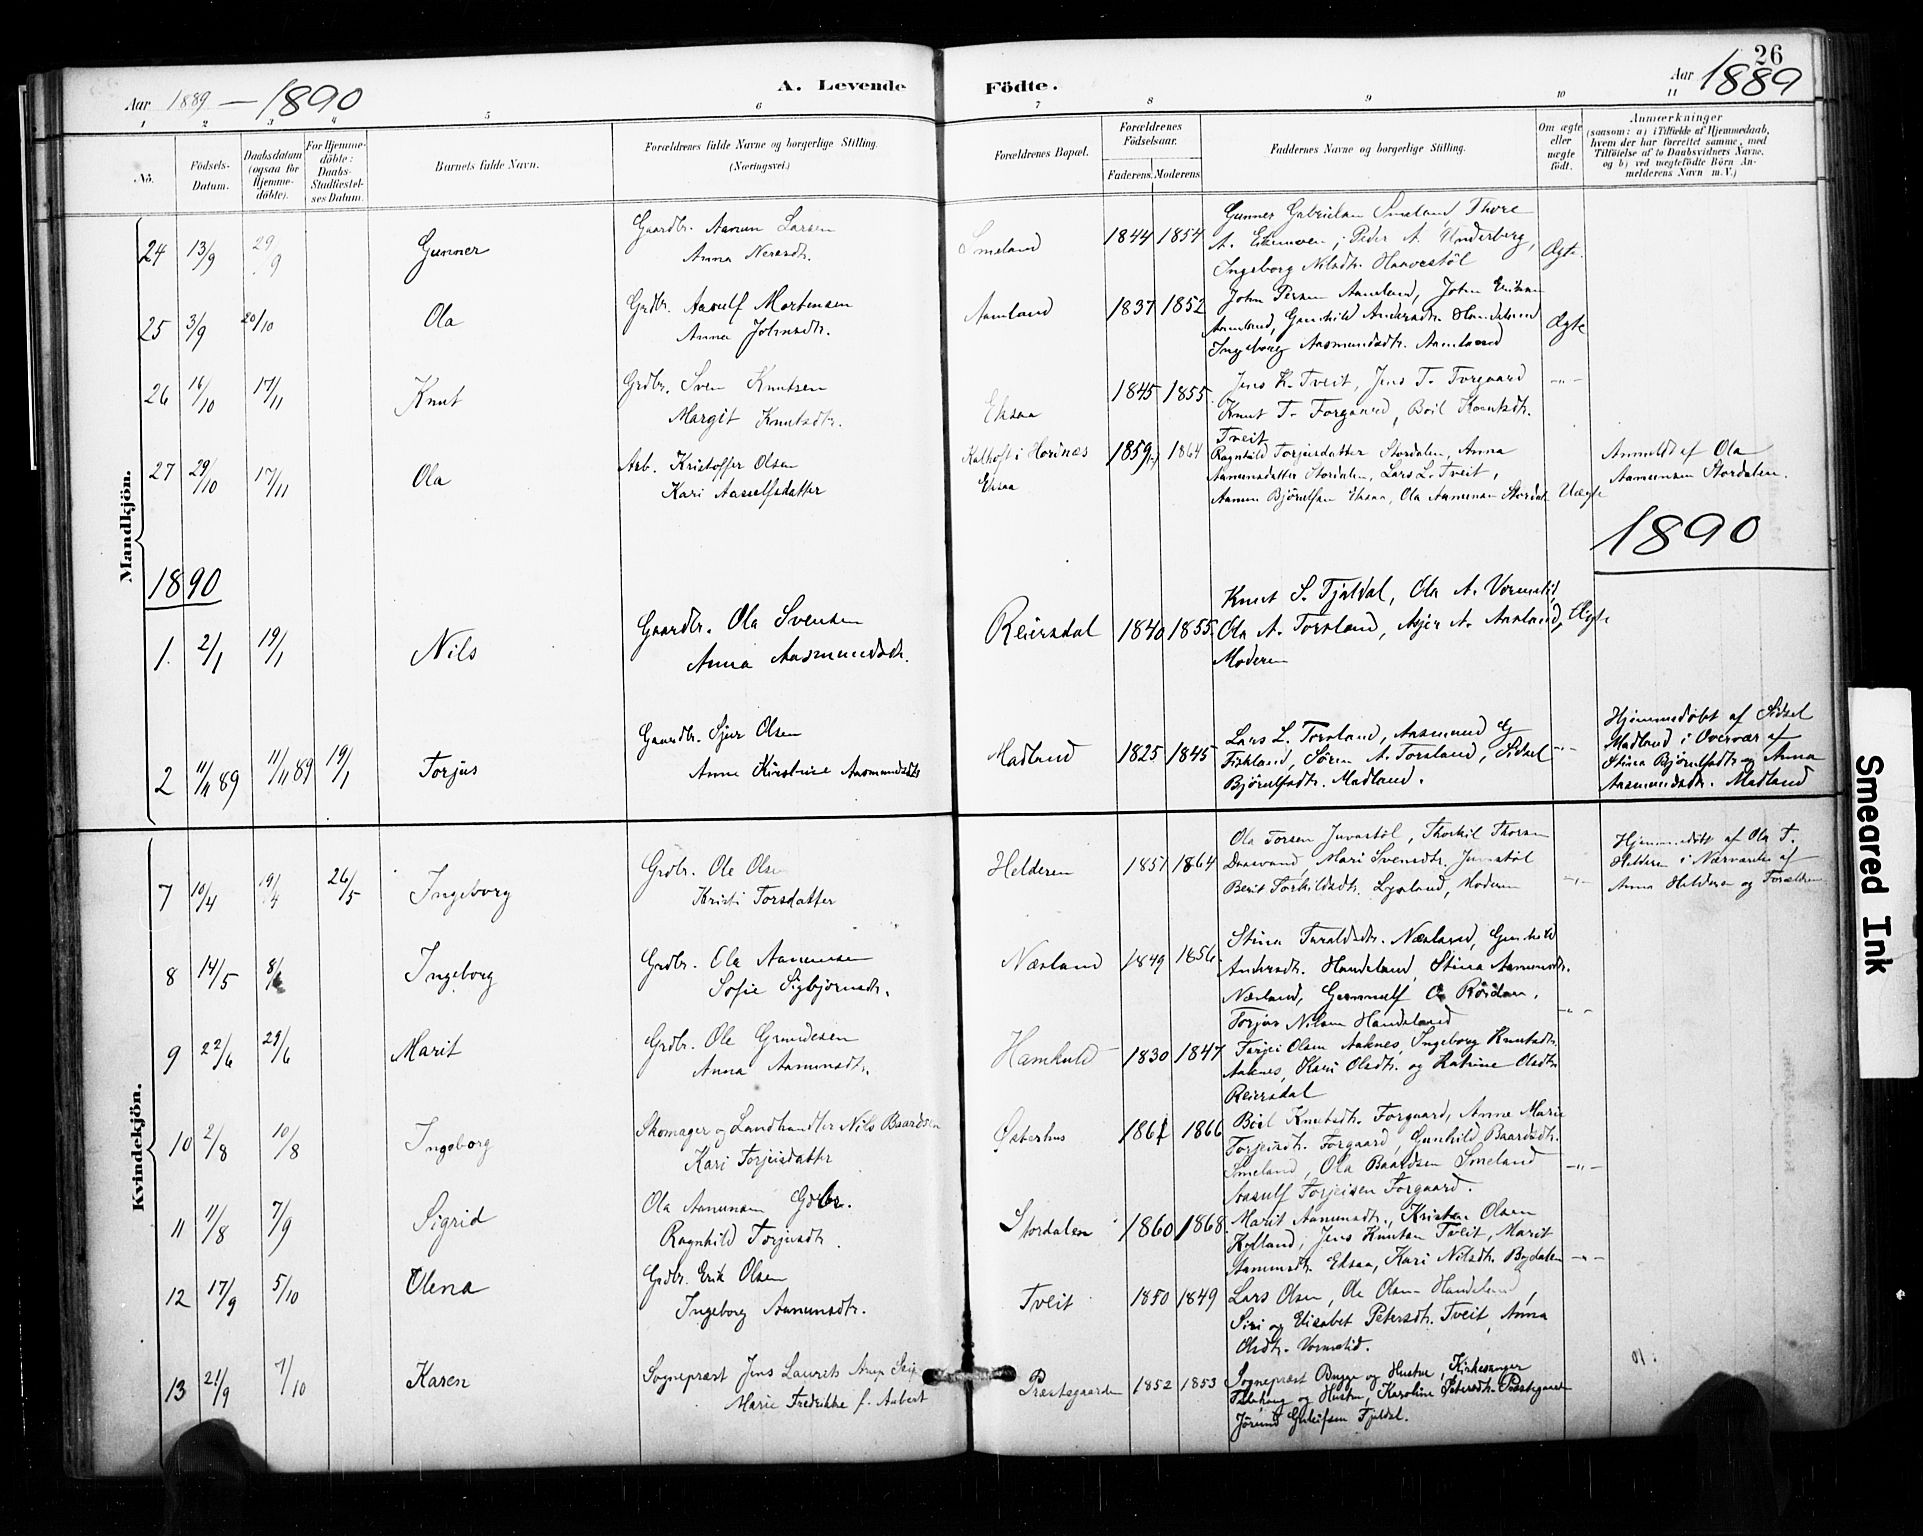 26
Aar 1889 — 1890
A. Levende Födte.
Aar 1889
1 2 3 4 5 6 7 8 9 10 11
No.
Födsels-Datum.
Daabsdatum (ogsaa for Hjemmedöbte).
For Hjemmedöbte: Daabs-Stadfæstelses Datum.
Barnets fulde Navn.
Forældrenes fulde Navne og borgerlige Stilling.
(Næringsvei.)
Forældrenes Bopæl.
Forældrenes Födselsaar.
Faderens. Moderens.
Faddernes Navne og borgerlige Stilling.
Om ægte eller uægte födt.
Anmærkninger
(saasom: a) i Tilfælde af Hjemmedaab,
hvem der har forrettet samme, med
Tilföielse af to Daabsvidners Navne.
og b) ved uægtefödte Börn Anmelderens Navn m. V.)
Mandkjön.
24 13/9 29/9 Gunner Gaardbr. Aanen Larsen
Anna Neresdtr. Smeland 1844 1854 Gunner Gabrielsen Smeland, Thore
A. Eikenven; Peder A. Underberg,
Ingeborg Nilsdtr. Haavestöl Ægte.
25 3/9 20/10 Ola Grdbr. Aasulf Mortensen
Anna Johnsdtr. Aamland 1837 1852 John Persen Aamland, John Eriksen
Aamland, Gunhild Andersdtr. Handeland
Ingeborg Aasmundsdtr. Aamland Ægte
26 16/10 17/11 Knut Grdbr. Sven Knutsen
Margit Knutsdtr. Eksaa 1845 1855 Jens K. Tveit, Jens T. Forgaard
Knut T. Forgaard, Boil Knutsdtr.
Tveit —"—
27 29/10 17/11 Ola Arb. Kristoffer Olsen
Kari Aasulfsdatter Kalhoft i Horinæs
Eksaa 1859 1864 Ragnhild Torjusdatter Stordalen, Anna
Aamunsdatter Stordalen, Lars L. Tveit,
Aamun Björulfsen Eksaa, Ola Aamunsen Stordal. Uægte Anmeldt af Ola
Aamunsen Stordalen.
1890 1890
1. 2/1 19/1 Nils Gaardbr. Ola Svensen
Anna Aasmundsdtr. Reiersdal 1840 1855 Knut S. Fjeldal, Ola A. Vormelid,
Ola A. Torsland, Asjer A. Aasland,
Moderen Ægte
2 11/11 89 11/11 89 19/1 Torjus Gaardbr. Sjur Olsen
Anne Kirstine Aasmundsdtr. Madland 1825 1845 Lars L. Torsland, Aasmund G
Fikland, Sören A. Torsland, Sidsel
Björulfsdtr. Madland. —"— Hjemmedöbt af Sidsel
Madland i Overvær af
Stina Björulfsdtr og Anna
Aasmundsdtr. Madland
Kvindekjön.
7 10/4 19/4 26/5 Ingeborg Grdbr. Ole Olsen
Kristi Torsdatter Helderen 1857 1864 Ola Torsen Juvastöl, Thorkil Thorsen
Daasvand, Mari Svensdtr. Juvastöl
Berit Torkildsdtr. Lysland, Moderen —"— Hjemmedöbt af Ola T.
Helderen i Nærværelse af
Anna Helderen og Forældrene
8 14/5 8/6 Ingeborg Grdbr. Ola Aanensen
Sofie Sigbjörnsdtr. Næsland 1849 1856 Stina Taraldsdtr. Næsland, Gunhild
Andersdtr. Handeland, Stina Aamunsdtr.
Næsland, Gunnulf O. Röisland.
Torjus Nilsen Handeland —"—
9 22/6 29/6 Marit Grdbr. Ole Grundesen
Anna Aamunsdtr. Hamkuld 1830 1847 Torjei Olsen Aaknes, Ingeborg Knutsdtr.
Aaknes, Kari Olsdtr. og Katrine Olsdtr.
Reiersdal
10 2/8 10/8 Ingeborg Skomager og Landhandler Nils Baardsen
Kari Torjeisdatter Østerhus 1861 1866 Boil Knutsdtr. Forgaard, Anne Marie
Torjeisdtr. Forgaard, Gunhild Baardsdtr.
Smeland, Ola Baardsen Smeland
Aasulf Torjeisen Forgaard. —"—
11 11/8 7/9 Sigrid Ola Aamunsen Gdbr.
Ragnhild Torjusdtr. Stordalen 1860 1868. Marit Aamunsdtr., Kristen Olsen
Kylland; Jens Knutsen Tveit, Marit
Aamunsdtr. Eksaa, Kari Nilsdtr. Bydalen —"—
12 17/9 5/10 Olena Grdbr. Erik Olsen
Ingeborg Aamunsdtr. Tveit 1850 1849 Lars Olsen, Ole Olsen Handeland,
Siri og Elisabet Petersdtr. Tveit, Anna
Olsdtr. Vormelid.
13 21/9 7/10 Karen Sogneprest Jens Laurits Arup Seip
Marie Fredrikke f. Aubert Præstegaarden 1852 1853 Sogneprest Bugge og Hustru, Kirkesanger
og Hustru, Karoline Petersdtr. Præstegaarden
Jörund Fjeldal.
Smeared Ink